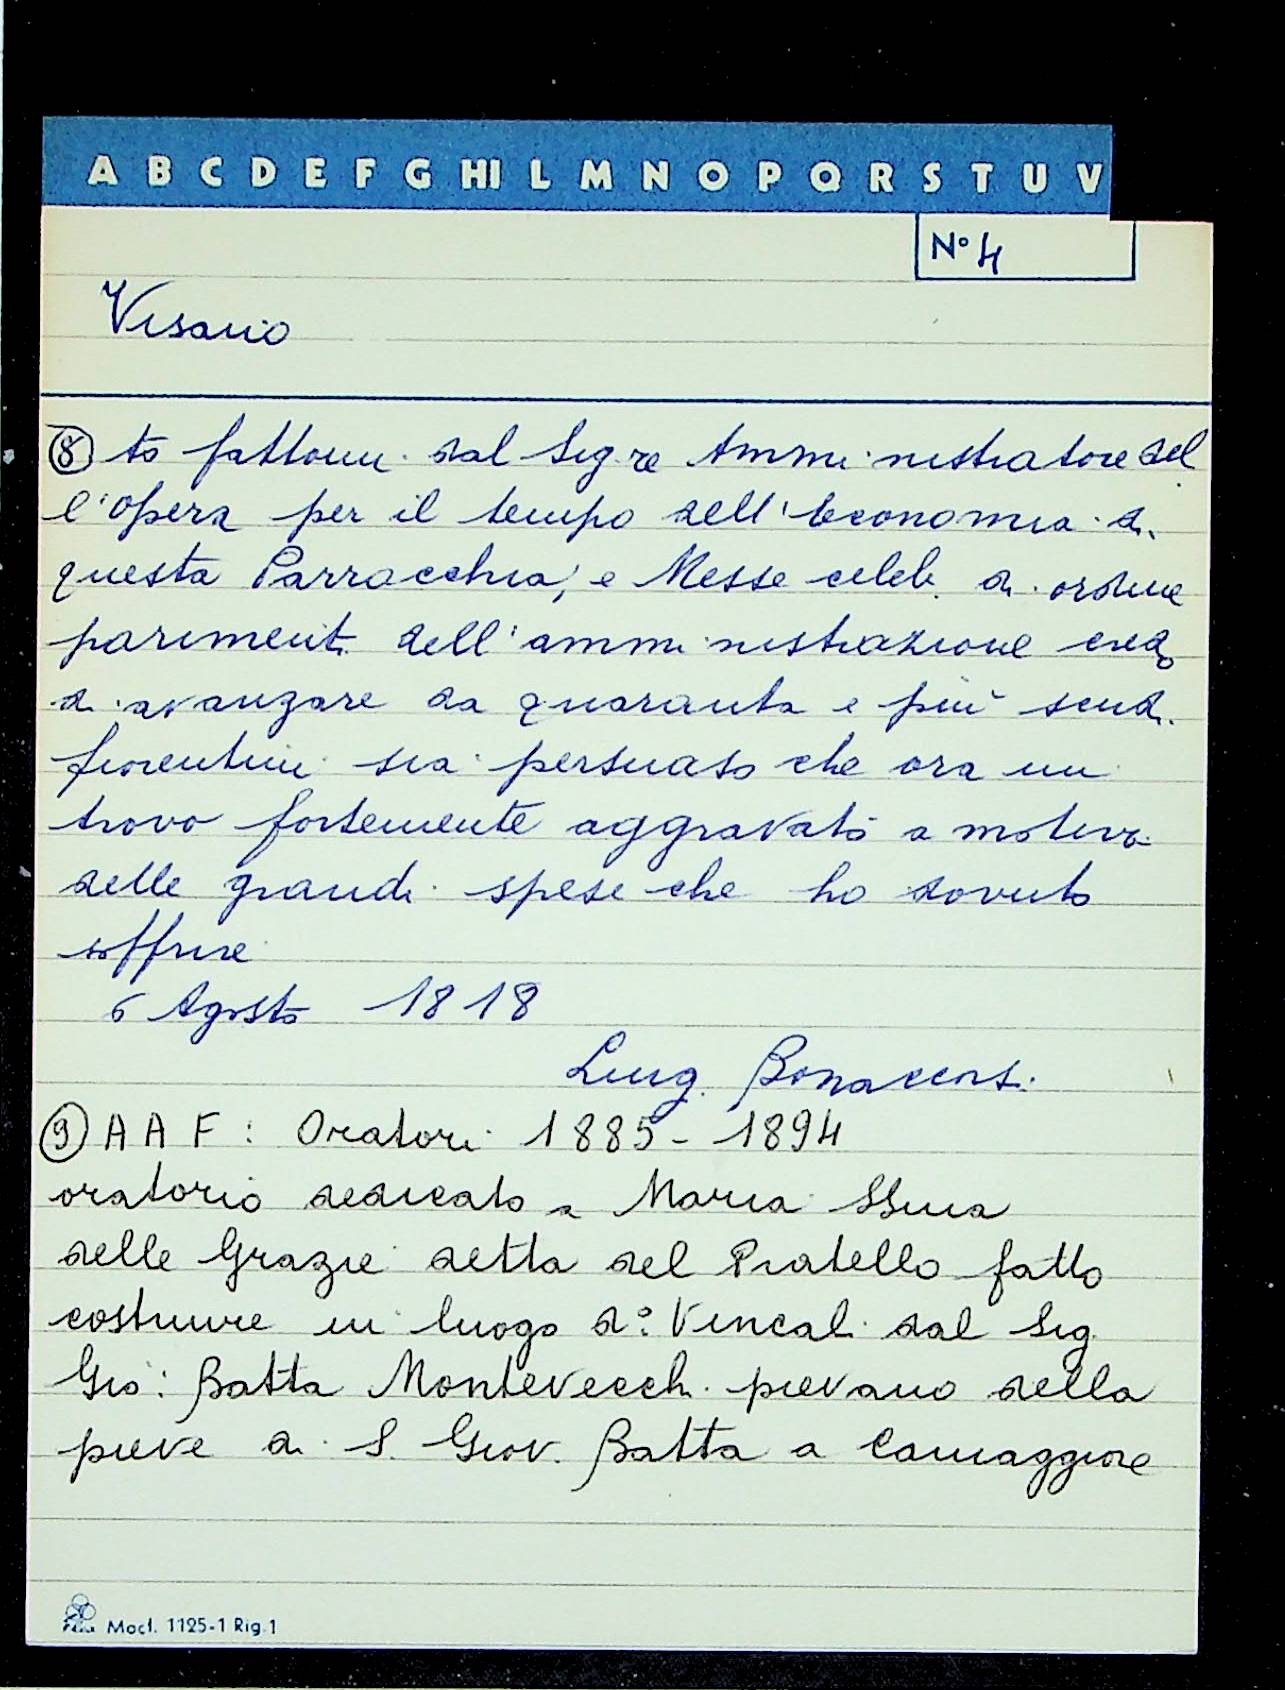 A B C D E F G HI L M N O P Q R S T U V
N° 4
Visario
⑧ to fattomi dal Sig.re Amministratore del
l'opera per il tempo dell'Economia di
questa Parrocchia, e Messe celeb. di ordine
parimenti dell'amministrazione credo
di avanzare da quaranta e più scudi
fiorentini sia persuaso che ora mi
trovo fortemente aggravato a motivo
delle grandi spese che ho dovuto
soffrire
6 Agosto 1818
Luigi Bonaccorsi
⑨ A A F : Oratori 1885 - 1894
oratorio dedicato a Maria SSma
delle Grazie detta del Pratello fatto
costruire in luogo d°: Vincali dal Sig.
Gio: Batta Montevecchi pievano della
pieve di S. Giov. Batta a Camaggiore
Mod. 1125-1 Rig. 1